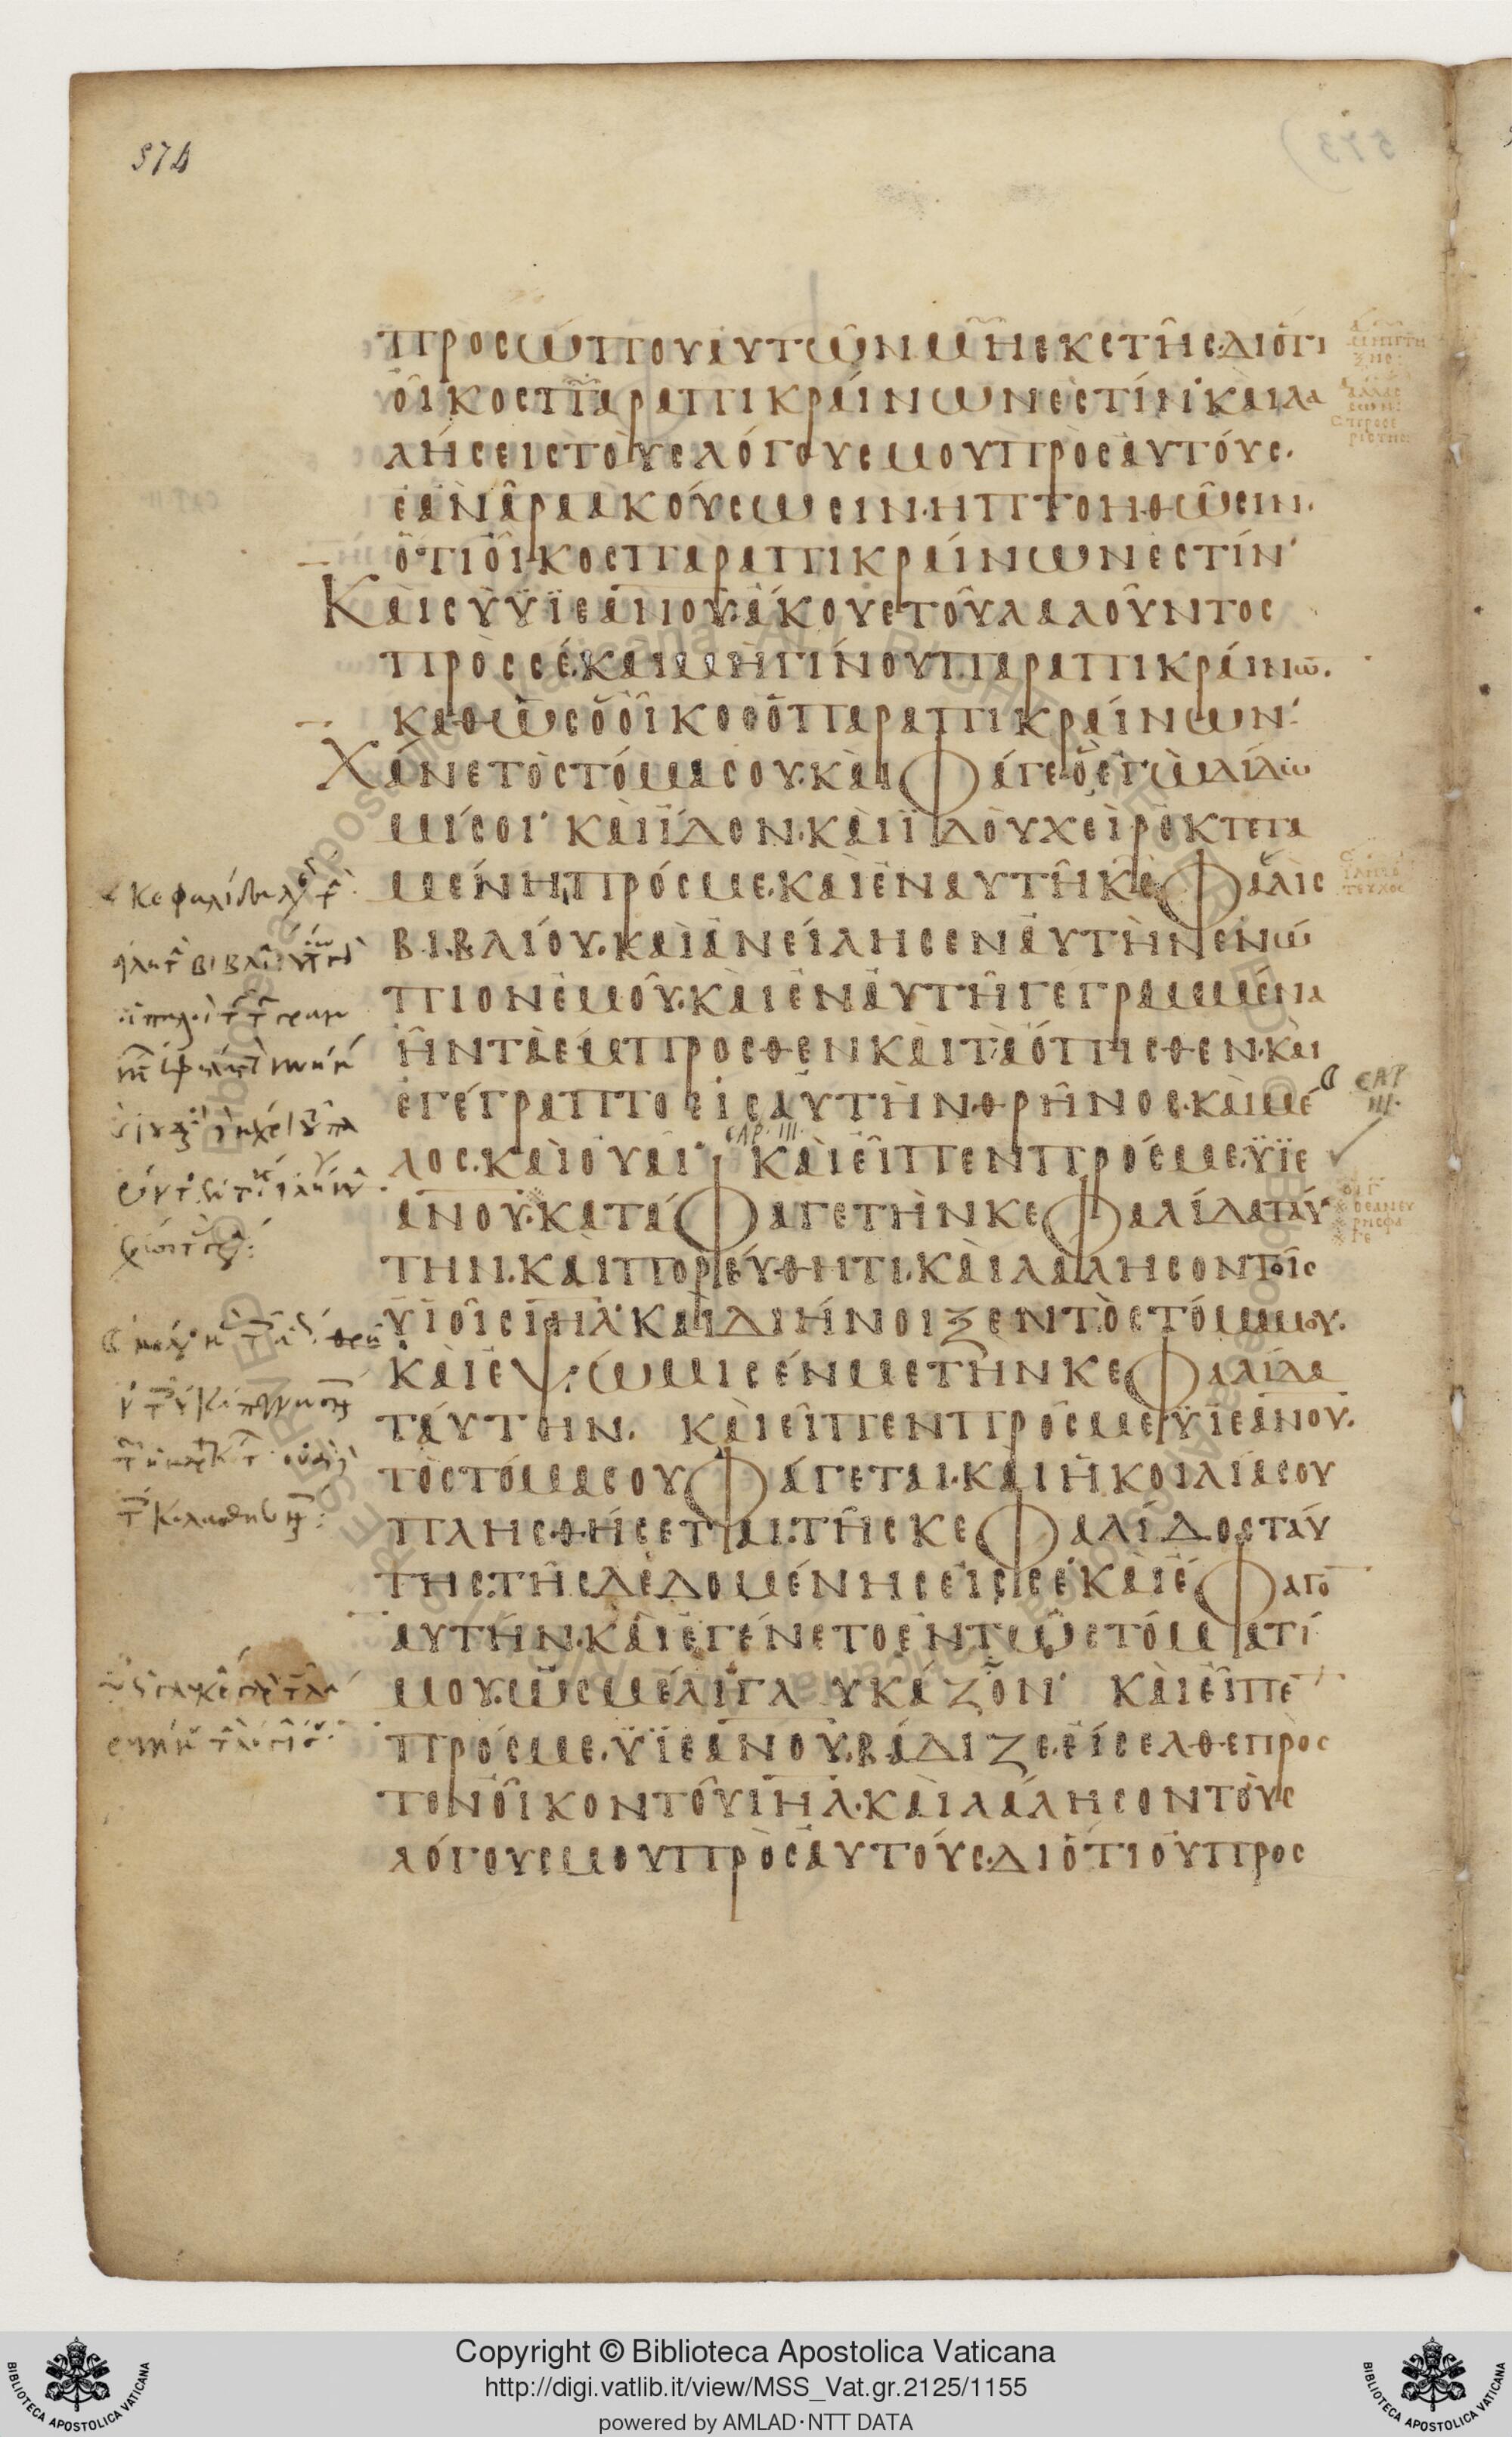 574
ΠΡΟCΩΠΟΥΑΥΤΩΝ ΜΗ ΕΚCΤΗC·ΔΙΟΤΙ
ΟΙΚΟCΠΑΡΑΠΙΚΡΑΙΝΩΝΕCΤΙΝ·ΚΑΙΛΑ
ΛΗCΕΙCΤΟΥCΛΟΓΟΥCΜΟΥΠΡΟCΑΥΤΟΥC·
ΕΑΝΑΡΑΑΚΟΥCΩCΙΝ·ΗΠΤΟΗΘΩCΙΝ·
ΟΤΙΟΙΚΟCΠΑΡΑΠΙΚΡΑΙΝΩΝΕCΤΙΝ·
ΚΑΙCΥΫΪΕΑΝΟΥ·ΑΚΟΥΕΤΟΥΛΑΛΟΥΝΤΟC
ΠΡΟCCΕ·ΚΑΙΜΗΓΙΝΟΥΠΑΡΑΠΙΚΡΑΙΝΩ̅·
ΚΑΘΩCΟΟΙΚΟCΟΠΑΡΑΠΙΚΡΑΙΝΩΝ·
ΧΑΝΕΤΟCΤΟΜΑCΟΥ·ΚΑΙΦΑΓΕΟΕΓΩΔΙΔΩ
ΜΙCΟΙ· ΚΑΙΪΔΟΝ·ΚΑΙΪΔΟΥΧΕΙΡΕΚΤΕΤΑ
ΜΕΝΗΠΡΟCΜΕ·ΚΑΙΕΝΑΥΤΗΚΕΦΑΛΙC
ΒΙΒΛΙΟΥ·ΚΑΙΑΝΕΙΛΗCΕΝΑΥΤΗΝΕΝΩ
ΠΙΟΝΕΜΟΥ·ΚΑΙΕΝΑΥΤΗΓΕΓΡΑΜΜΕΝΑ
ΗΝΤΑΕΜΠΡΟCΘΕΝΚΑΙΤΑΟΠΙCΘΕΝ·ΚΑΙ
ΕΓΕΓΡΑΠΤΟΕΙCΑΥΤΗΝ·ΘΡΗΝΟC·ΚΑΙΜΕ
CAP III·
CAP. III.
ΛΟC·ΚΑΙΟΥΑΙ· ΚΑΙΕΙΠΕΝΠΡΟCΜΕ·ΫΪΕ
ΑΝΟΥ·ΚΑΤΑΦΑΓΕΤΗΝΚΕΦΑΛΙΔΑΤΑΥ
ΤΗΝ·ΚΑΙΠΟΡΕΥΘΗΤΙ·ΚΑΙΛΑΛΗCΟΝΤΟΙC
ΫΙΟΙCΙΗΛ·ΚΑΙΔΙΗΝΟΙΞΕΝΤΟCΤΟΜΑΜΟΥ·
ΚΑΙΕΨΩΜΙCΕΝΜΕΤΗΝΚΕΦΑΛΙΔΑ
ΤΑΥΤΗΝ· ΚΑΙΕΙΠΕΝΠΡΟCΜΕΫΪΕΑΝΟΥ·
ΤΟCΤΟΜΑCΟΥΦΑΓΕΤΑΙ·ΚΑΙΗΚΟΙΛΙΑCΟΥ
ΠΛΗCΘΗCΕΤΑΙ·ΤΗCΚΕΦΑΛΙΔΟCΤΑΥ
ΤΗC·ΤΗCΔΕΔΟΜΕΝΗCΕΙCCΕ·ΚΑΙΕΦΑΓΟ̅
ΑΥΤΗΝ·ΚΑΙΕΓΕΝΕΤΟΕΝΤΩCΤΟΜΑΤΙ
ΜΟΥ·ΩCΜΕΛΙΓΛΥΚΑΖΟΝ· ΚΑΙΕΙΠΕ̅
ΠΡΟCΜΕ·ΫΪΕΑΝΟΥ·ΒΑΔΙΖΕ·ΕΙCΕΛΘΕΠΡΟC
ΤΟΝΟΙΚΟΝΤΟΥΙΗΛ·ΚΑΙΛΑΛΗCΟΝΤΟΥC
ΛΟΓΟΥCΜΟΥΠΡΟCΑΥΤΟΥC·ΔΙΟΤΙΟΥΠΡΟC
Copyright © Biblioteca Apostolica Vaticana
http://digi.vatlib.it/view/MSS_Vat.gr.2125/1155
powered by AMLAD·NTT DATA
BIBLIOTECA APOSTOLICA VATICANA
BIBLIOTECA APOSTOLICA VATICANA